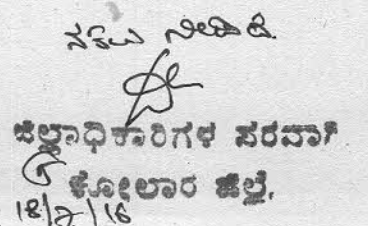 ನಕಲು ನೀಡಿದೆ.
ಜಿಲ್ಲಾಧಿಕಾರಿಗಳ ಪರವಾಗಿ
ಕೋಲಾರ ಜಿಲ್ಲೆ.
18/7/16